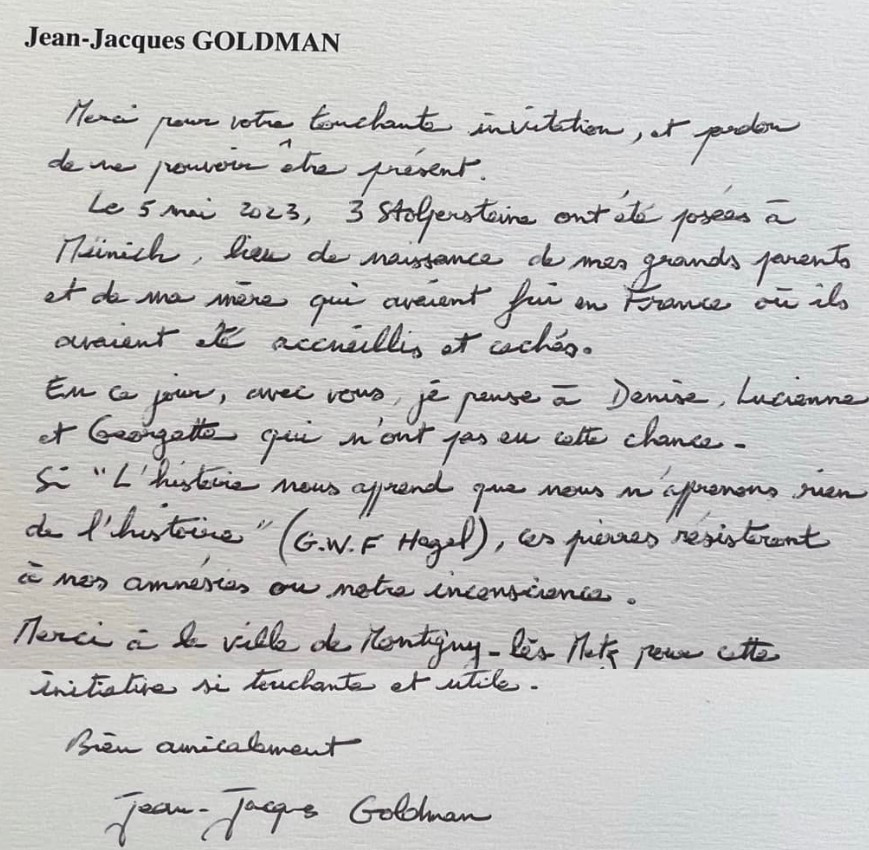 Jean-Jacques GOLDMAN
Merci pour votre touchante invitation, et pardon
de ne pouvoir être présent.
Le 5 mai 2023, 3 Stolpersteine ont été posées à
Münich, lieu de naissance de mes grands parents
et de ma mère qui avaient fui en France où ils
avaient été accueillis et cachés.
En ce jour, avec vous, je pense à Denise, Lucienne
et Georgette qui n'ont pas eu cette chance.
Si "L'histoire nous apprend que nous n'apprenons rien
de l'histoire" (G.W.F Hegel), ces pierres résisteront
à nos amnésies ou notre inconscience.
Merci à la ville de Montigny-lès Metz pour cette
initiative si touchante et utile.
Bien amicalement
Jean-Jacques Goldman